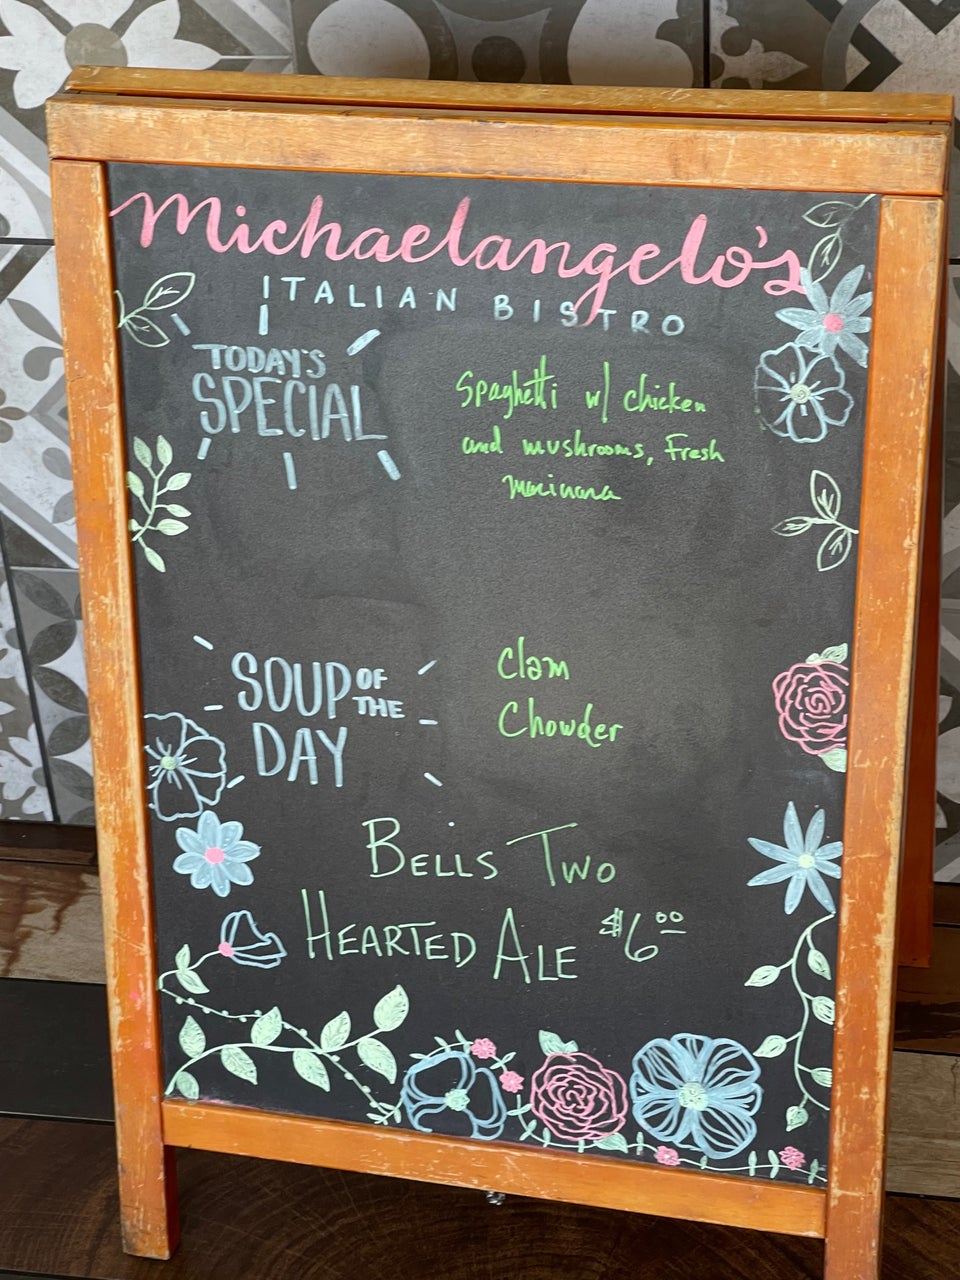 Michaelangelo's
ITALIAN BISTRO
TODAY'S
SPECIAL
Spaghetti w/ chicken
and mushrooms, Fresh
marinara
SOUP OF THE
DAY
Clam
Chowder
BELLS TWO
HEARTED ALE $6.00